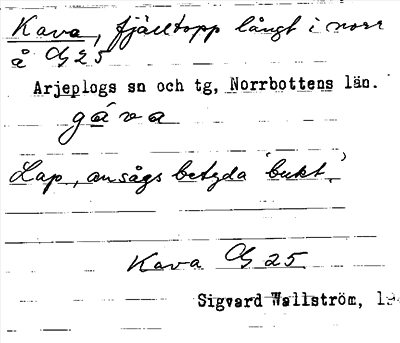 Kava, fjälltopp långt i norr
å G 25
Arjeplogs sn och tg, Norrbottens län.
gáva
Lap., ansågs betyda 'bukt.'
Kava G 25
Sigvard Wallström, 19